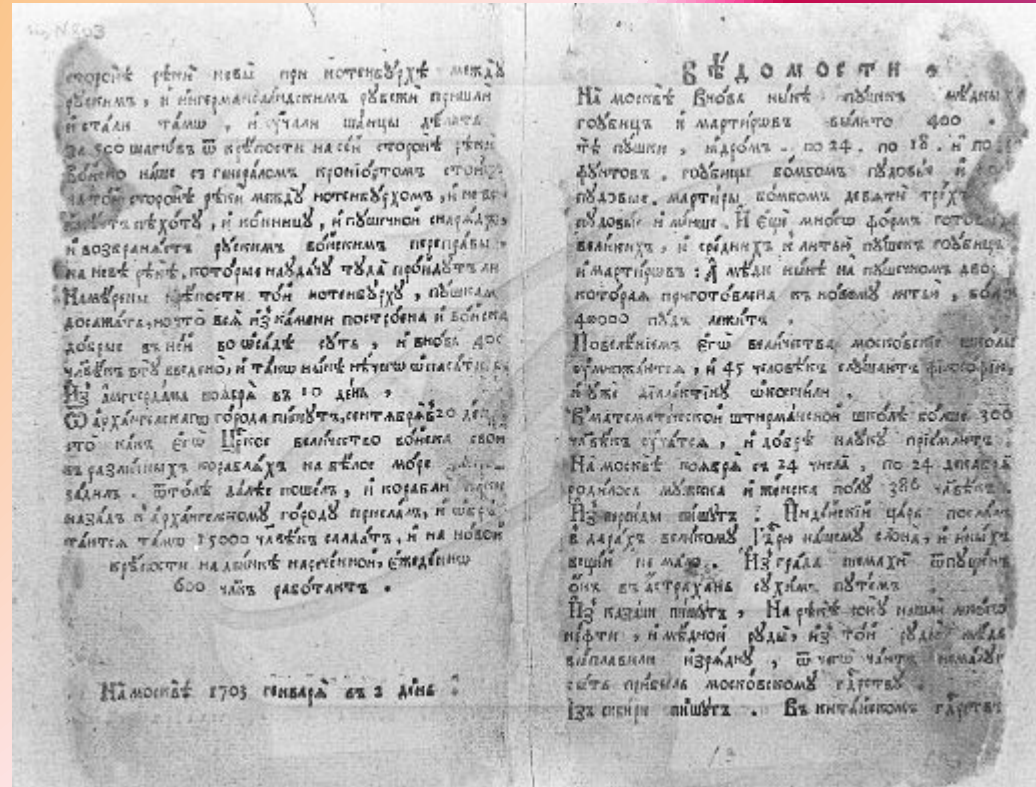 сторонѣ рѣки невы при нотенбꙋрхѣ междꙋ
рꙋскимъ, и ингерманландскимъ рꙋбежи пришли
и стали тамѡ, и ꙋчали шанцы дѣлать
за 500 шагѡвъ ѿ крѣпости на сей сторонѣ рѣки
Войско наше съ генераломъ кронїортомъ стоитъ
на той сторонѣ рѣки междꙋ нотенбꙋрхомъ, и не
пѣхотꙋ, и конницꙋ, и пꙋшечной снарядъ,
и возбраняетъ рꙋскимъ войскимъ переправы
на невѣ рѣкѣ, которые наꙋдачꙋ тꙋда пройдꙋтъ ли
Намѣрены крѣпости той нотенбꙋрхꙋ, пꙋшкам
досажать, но что вся изъ камени построена и войска
добрые въ ней во ѡсадѣ сꙋть, и вновь 400
члвѣкъ введено, и такѡ нынѣ нѣчегѡ ѡпасатисѧ
Из амстердама ноября въ 10 день,
Ѿ архангелскагѡ города пишꙋтъ, сентября 20 день
что какъ егѡ Цр҃кое величество войска свои
въ различныхъ корабляхъ на бѣлое море
задилъ. ѿтолѣ далѣе пошелъ, и корабли паки
назадъ к архангелскомꙋ городꙋ прислалъ, и ѡбрѣ
таются тамѡ 15000 члвѣкъ салдатъ, и на новой
крѣпости на двинкѣ нареченной, ежеденнѡ
600 члкъ работаютъ.
На москвѣ 1703 генваря въ 2 день :
ВѢДОМОСТИ.
На москвѣ вновь нынѣ пꙋшекъ мѣдныхъ
гоꙋбицъ и мартирѡвъ вылито 400.
тѣ пꙋшки, ядромъ. по 24. по 18. и по
фꙋнтовъ. гоꙋбицы бомбомъ пꙋдовые и
пꙋдовые. мартиры бомбомъ девяти трѣхъ
пꙋдовые и менше. И еще многѡ формъ готовыхъ
великихъ, и среднихъ к литью пꙋшекъ гоꙋбицъ
и мартирѡвъ : А мѣди нынѣ на пꙋшечномъ дворѣ
которая приготовлена къ новомꙋ литью, болѣе
40000 пꙋдъ лежитъ.
Повелѣнїемъ егѡ величества московские школы
ꙋмножаются, и 45 человѣкъ слꙋшаютъ философїю,
и ꙋже дїалектикꙋ ѡкончили.
В математической штюрманской школѣ болше 300
члвѣкъ ꙋчатся, и добрѣ наꙋкꙋ прїемлютъ :
На москвѣ ноября съ 24 числа, по 24 декабря
родилось мꙋжска и женска полꙋ 386 члвѣкъ.
Из персиды пишꙋтъ : Индѣйский царь послалъ
в дарахъ великомꙋ Гдрю нашемꙋ слона, и иныхъ
вещей не мало. Из града шемахи ѿпꙋщенъ
онъ въ астрахань сꙋхимъ пꙋтемъ
Из казани пишꙋтъ, На рѣкѣ сокꙋ нашли многѡ
нефти, и мѣдной рꙋды, из той рꙋды мѣдь
выплавили изряднꙋ, ѿ чегѡ чаютъ немалꙋю
быть прибыль московскомꙋ гдрствꙋ.
Изъ сибири пишꙋтъ. Въ китайскомъ гдрствѣ